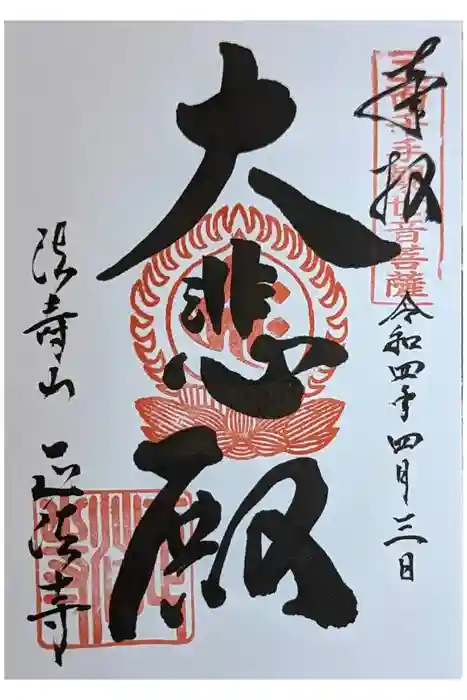 奉拝
三面千手観世音菩薩
令和四年四月三日
大悲殿
法寿山 正法寺